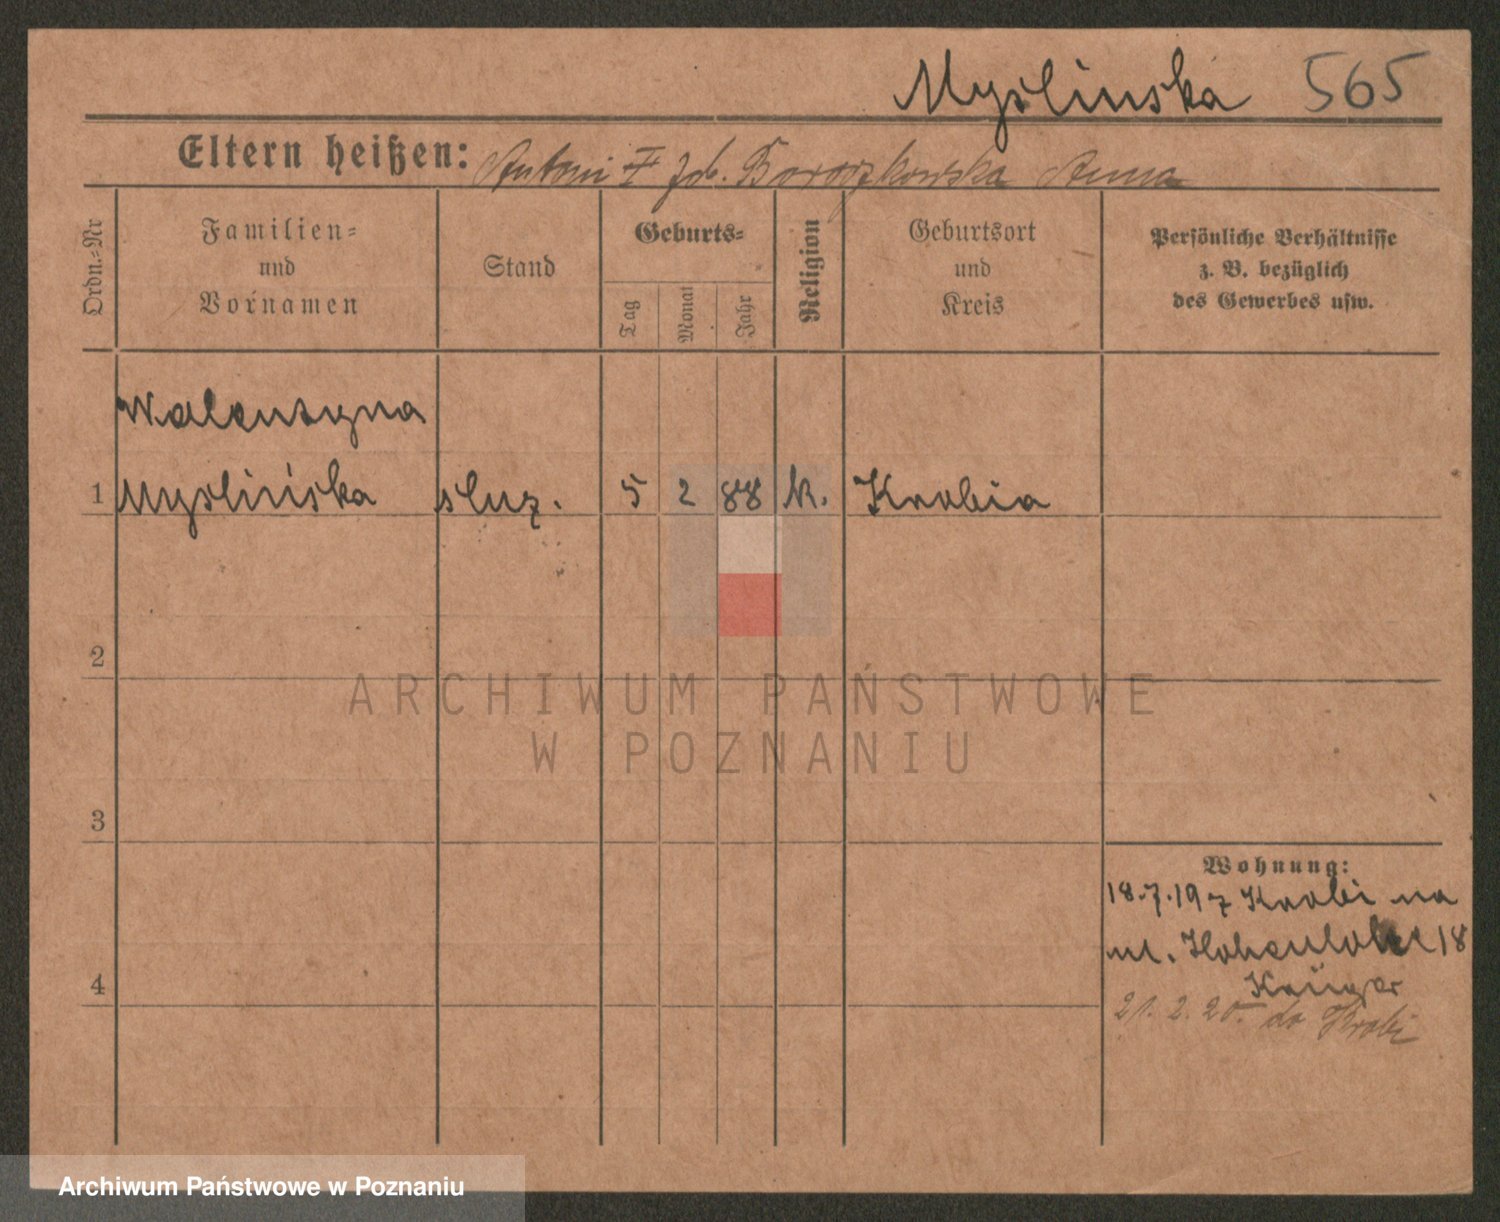 Myslinska 565
Eltern heißen: Antoni † zd. Anna
Ordn.-Nr
Familien-
und
Vornamen
Stand
Geburts-
Tag
Monat
Jahr
Religion
Geburtsort
und
Kreis
Persönliche Verhältnisse
z. B. bezüglich
des Gewerbes usw.
Walentyna
1 Myslińska służ. 5 2 88 k. Krobia
2
ARCHIWUM PAŃSTWOWE
W POZNANIU
3
Wohnung:
18.7.19 z Krobi na
ul. Hohenlohe 18
4
Krüger
21.2.20. do Krobi
Archiwum Państwowe w Poznaniu